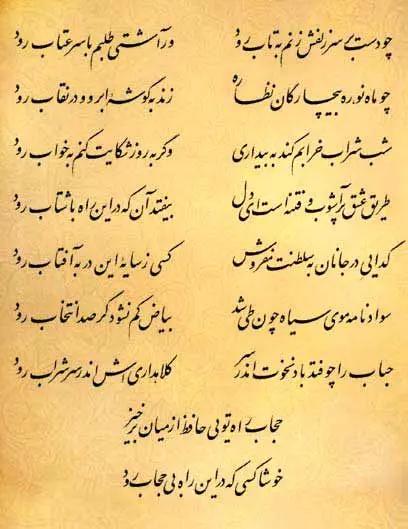 چو دست بر سر زلفش زنم به تاب رود ور آشتی طلبم با سر عتاب رود
چو ماه نو ره بیچارگان نظاره زند به گوشهٔ ابرو و در نقاب رود
شب شراب خرابم کند به بیداری وگر به روز شکایت کنم به خواب رود
طریق عشق پرآشوب و فتنه است ای دل بیفتد آن که در این راه با شتاب رود
گدایی در جانان به سلطنت مفروش کسی ز سایهٔ این در به آفتاب رود
سواد نامه موی سیاه چون طی شد بیاض کم نشود گر صد انتخاب رود
حباب را چو فتد باد نخوت اندر سر کلاه داری اش اندر سر شراب رود
حجاب راه تویی حافظ از میان برخیز
خوشا کسی که در این راه بی حجاب رود